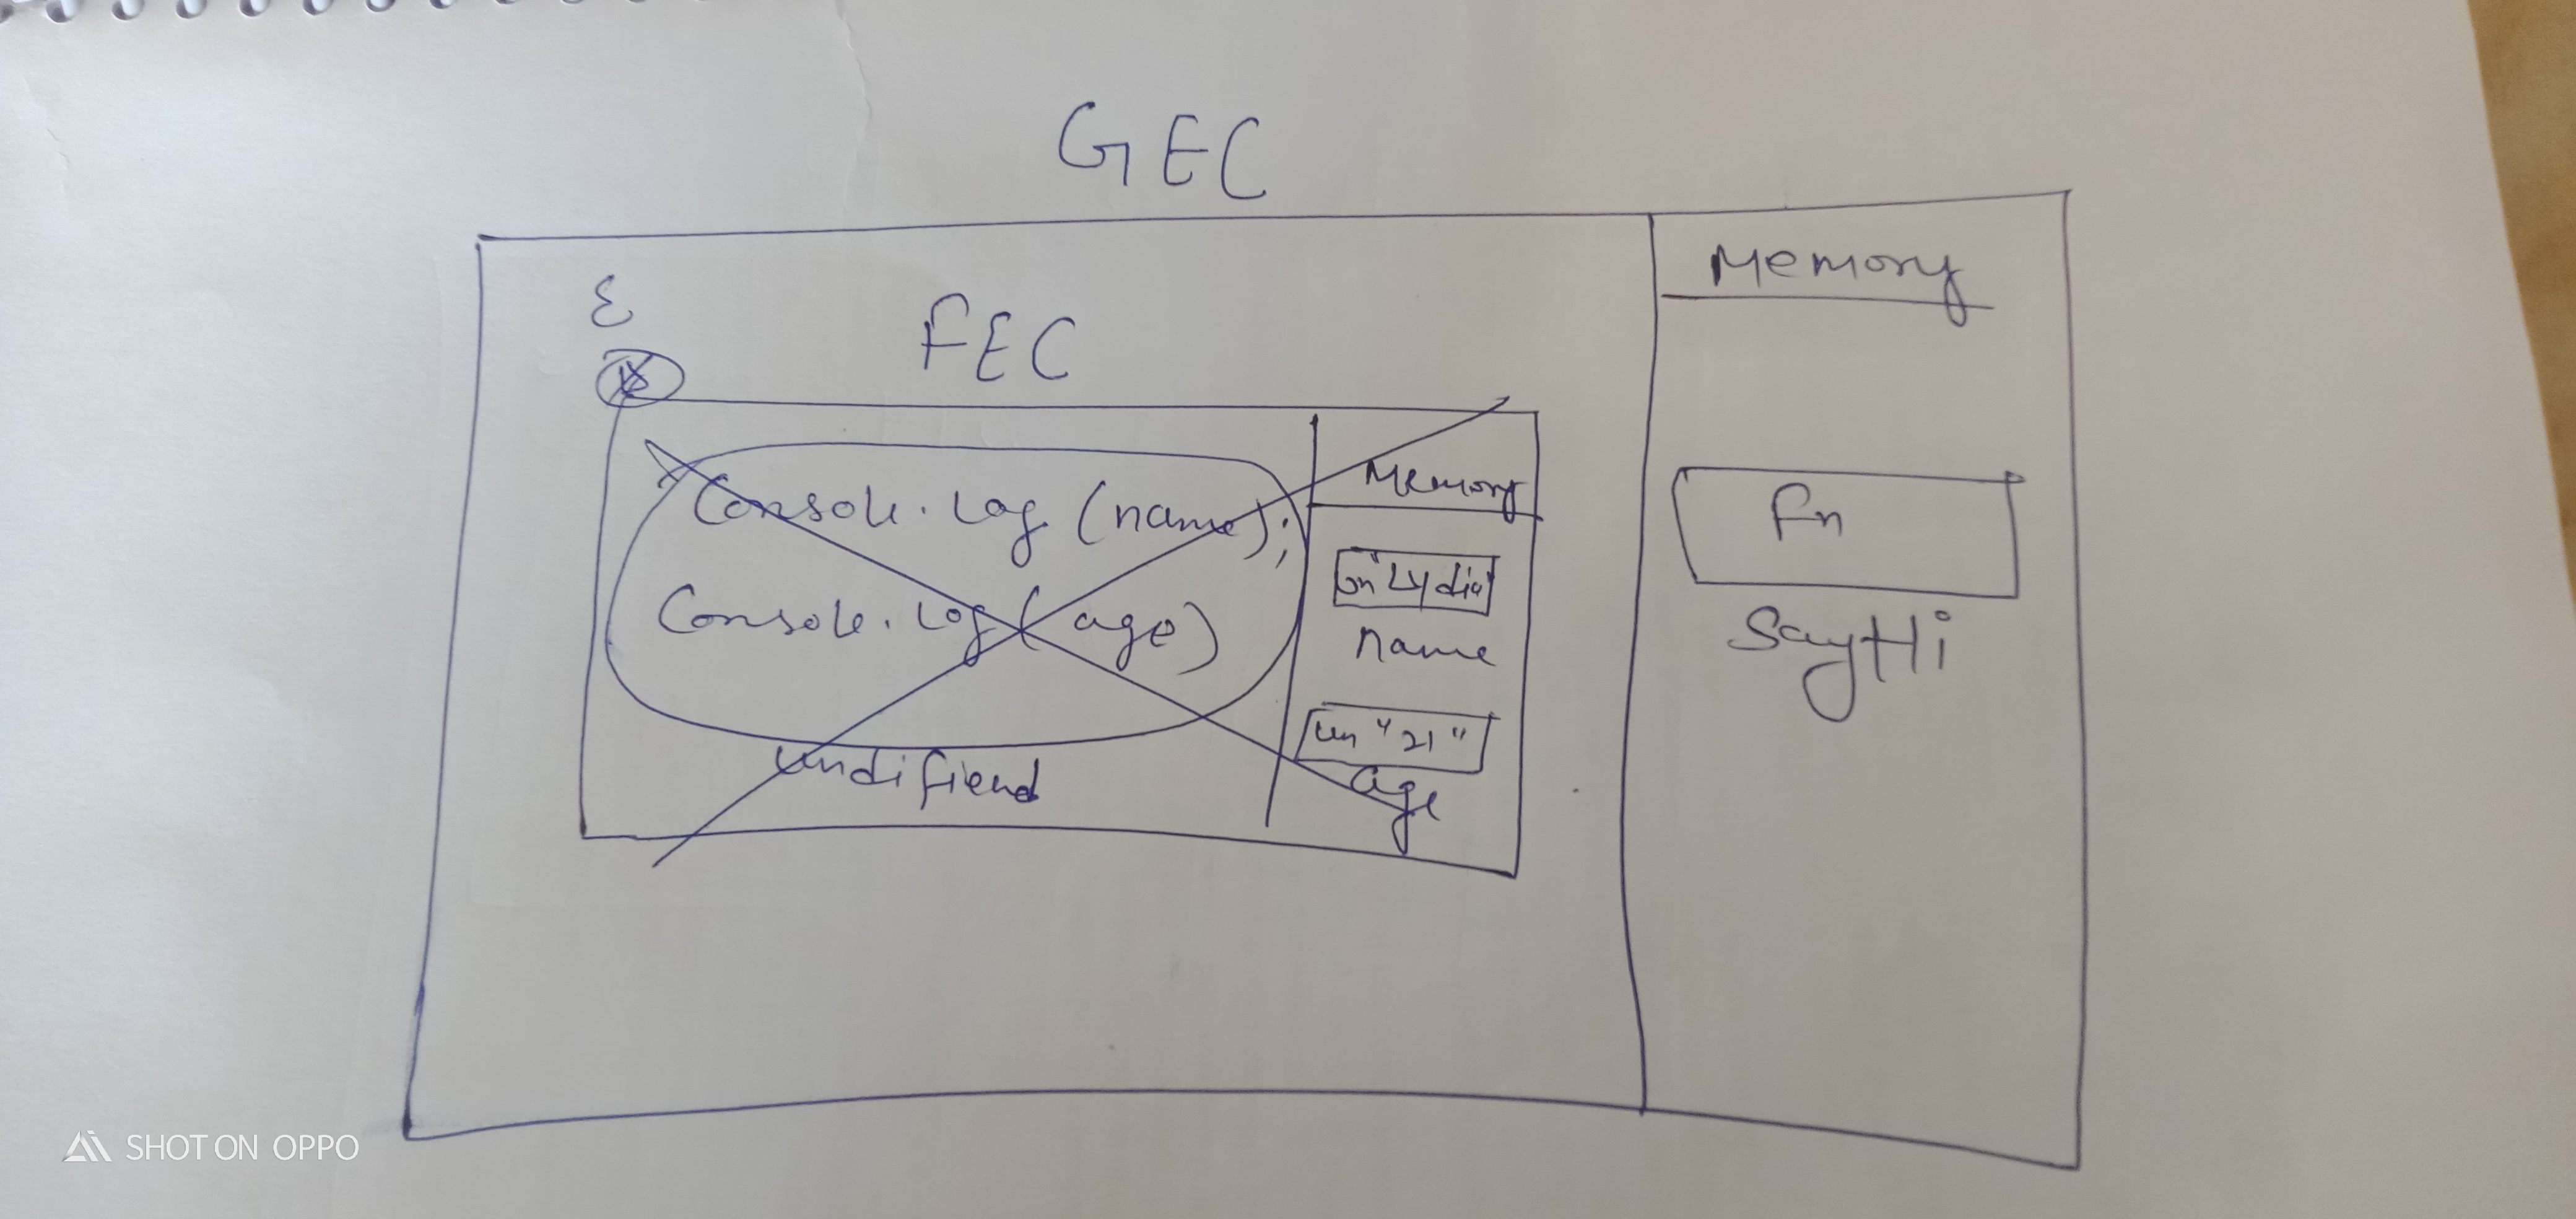 GEC
Memory
FEC
Console.log (name);
Console.log( age)
undifiend
Memory
un "Lydia"
name
un "21"
age
Fn
SayHi
SHOT ON OPPO